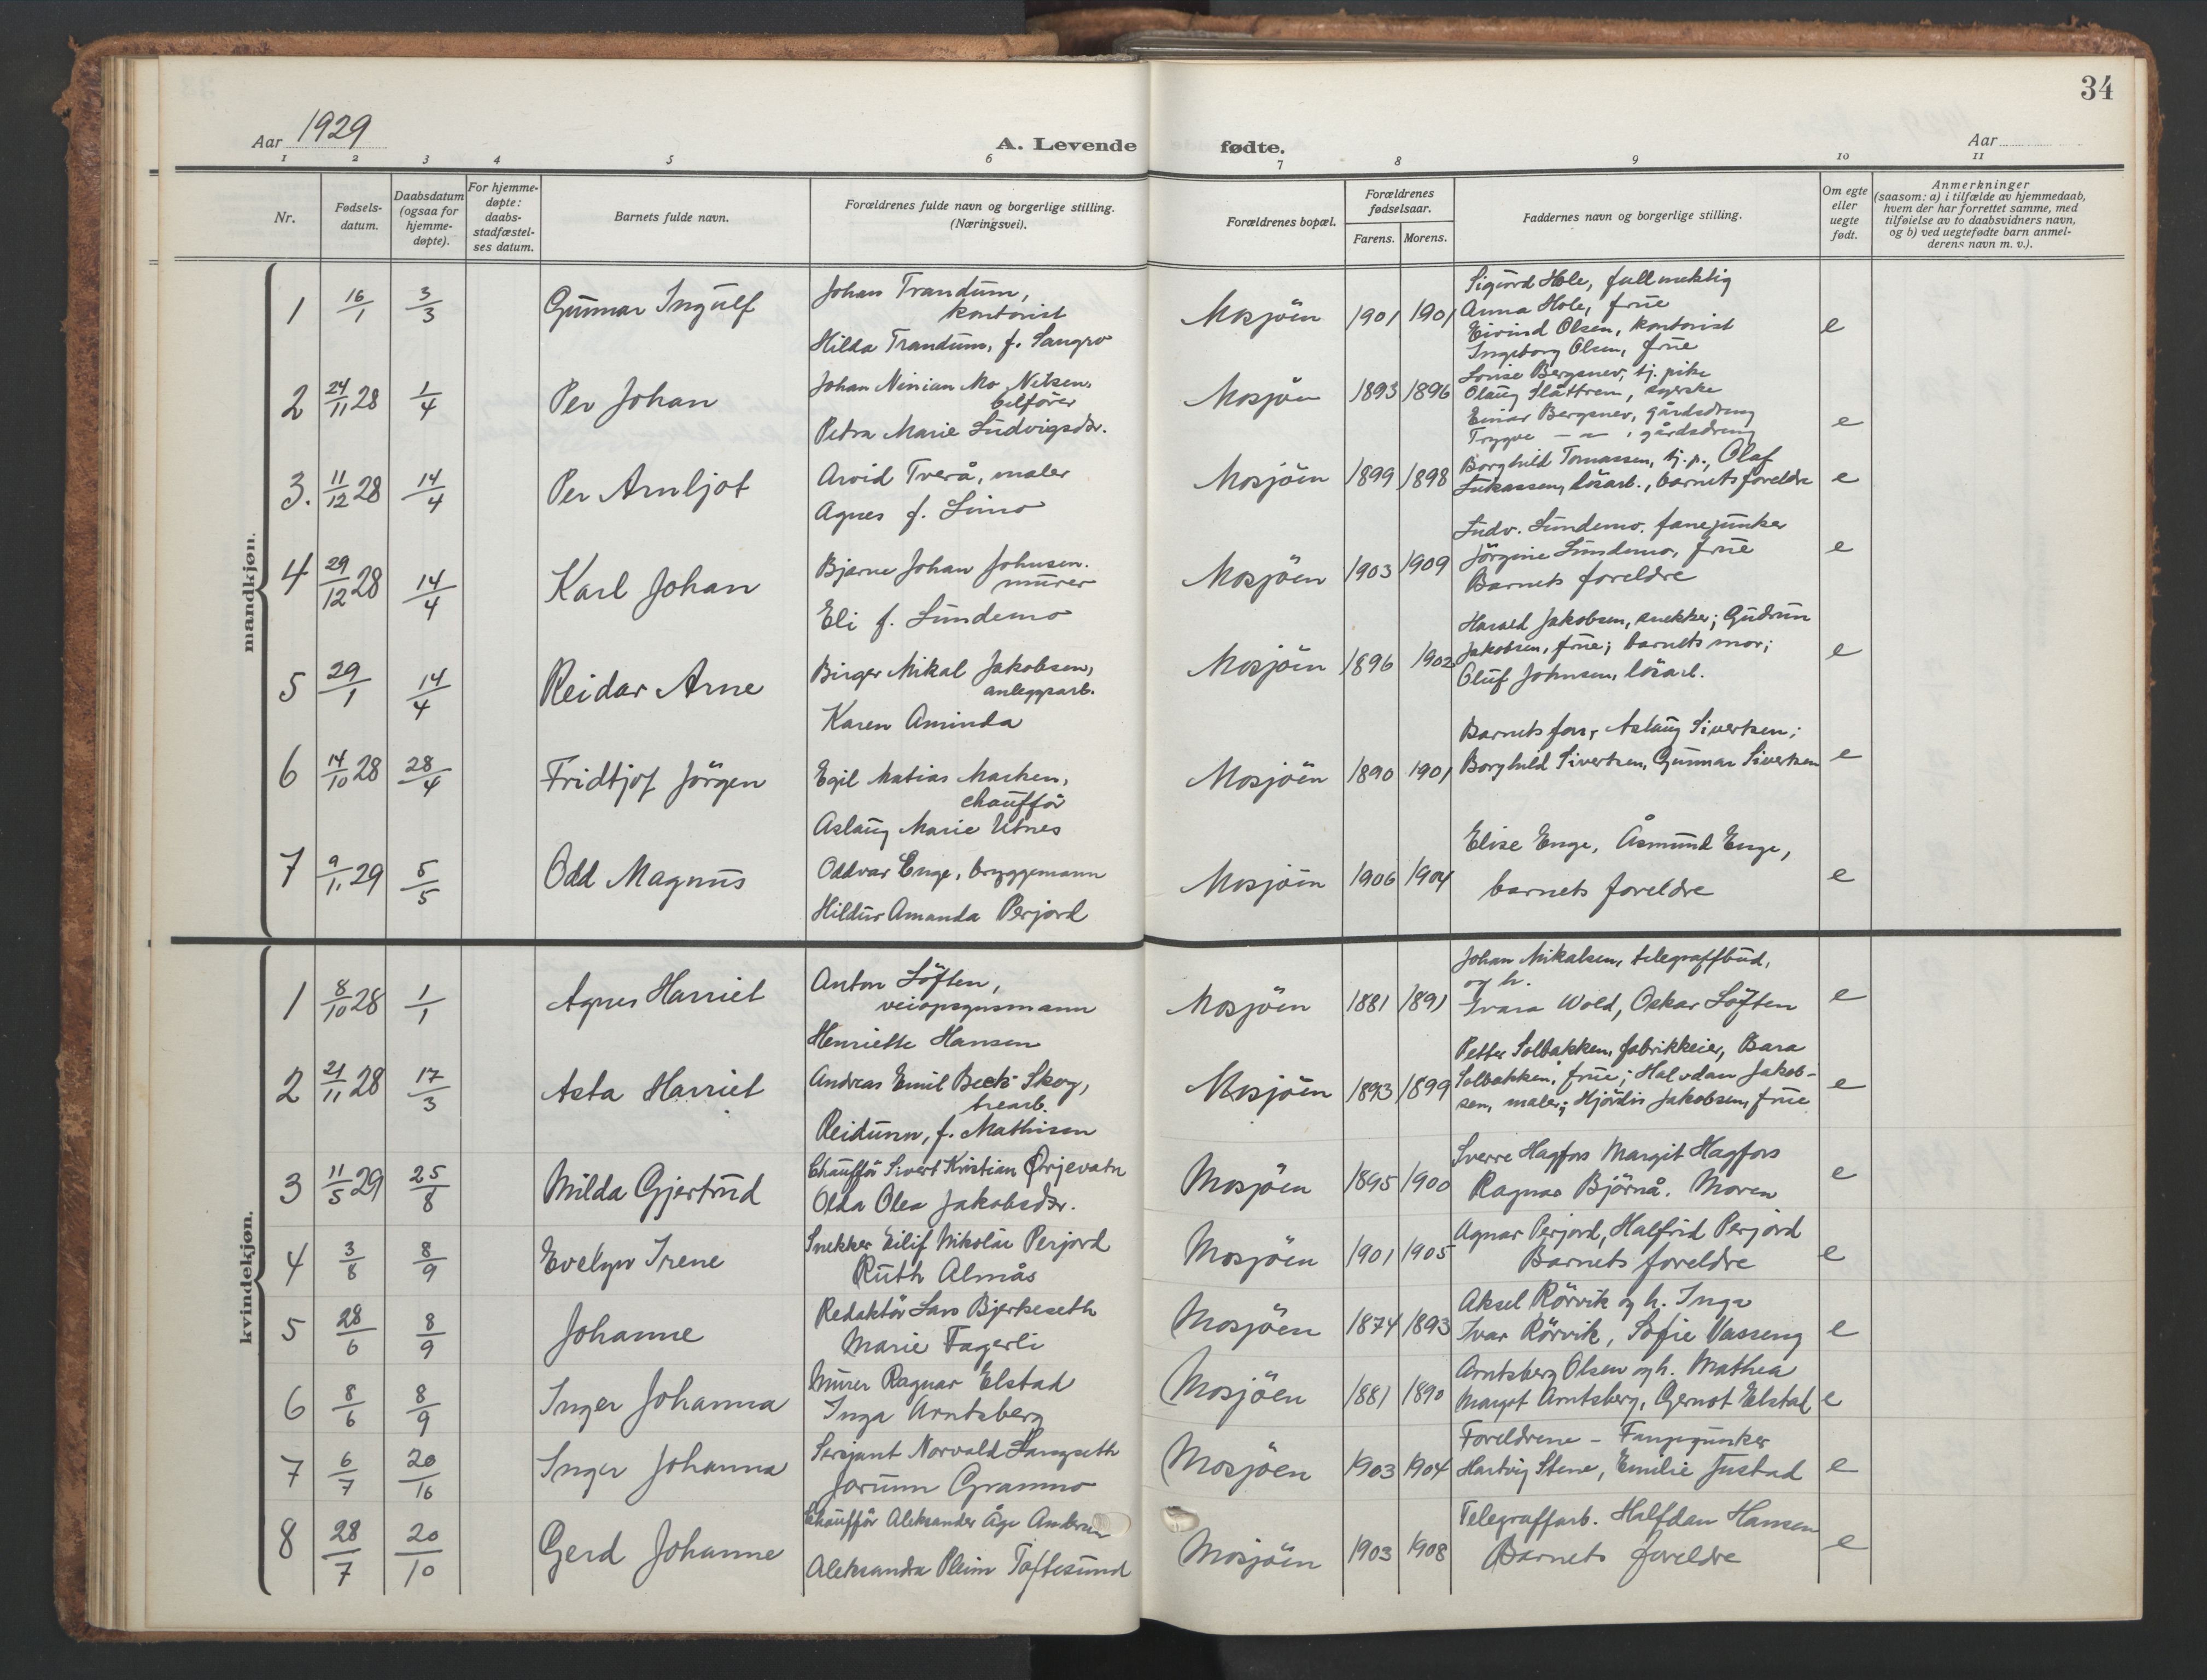 34
Aar 1929
A. Levende fødte.
Aar
1 2 3 4 5 6 7 8 9 10 11
Nr.
Fødsels-
datum.
Daabsdatum
(ogsaa for
hjemme-
døpte).
For hjemme-
døpte:
daabs-
stadfæstel-
ses datum.
Barnets fulde navn.
Forældrenes fulde navn og borgerlige stilling.
(Næringsvei).
Forældrenes bopæl.
Forældrenes
fødselsaar.
Farens. Morens.
Faddernes navn og borgerlige stilling.
Om egte
eller
uegte
født.
Anmerkninger
(saasom: a) i tilfælde av hjemmedaab,
hvem der har forrettet samme, med
tilføielse av to daabsvidners navn,
og b) ved uegtefødte barn anmel-
derens navn m. v.).
mandkjøn.
1 16/1 3/3 Gunnar Ingulf
Johan Trandum,
kontorist
Hilda Trandum, f. Langro
Mosjöen 1901 1901
Sigurd Hole, fullmektig
Anna Hole, frue
Eivind Olsen, kontorist
Ingeborg Olsen, frue
e
2 24/11 28 1/4 Per Johan
Johan Ninian Mo Nilsen,
bilförer
Petra Marie Ludvigsdr.
Mosjöen 1893 1896
Lovise Bergsnev, tj. pike
Olaug Slåttrem, syerske
Einar Bergsnev, gårdsdreng
Trygve — " — , gårdsdreng
e
3. 11/12 28 14/4 Per Arnljot
Arvid Tverå, maler
Agnes f. Simo
Mosjöen 1899 1898
Borghild Tomassen, tj. p., Olaf
Lukassen, lösarb., barnets foreldre
e
4 29/12 28 14/4 Karl Johan
Bjarne Johan Johnsen.
murer
Eli f. Lundemo
Mosjöen 1903 1909
Ludv. Lundemo. fanejunker
Jörgine Lundemo, frue
Barnets foreldre
e
5 29/1 14/4 Reidar Arne
Birger Mikal Jakobsen,
anleggsarb.
Karen Aminda
Mosjöen 1896 1902
Harald Jakobsen, snekker; Gudrun
Jakobsen, frue; barnets mor;
Oluf Johnsen, lösarb.
e
6 14/10 28 28/4 Fridtjof Jörgen
Egil Matias Marken,
chaufför
Aslaug Marie Utnes
Mosjöen 1890 1901
Barnets far, Aslaug Sivertsen;
Borghild Sivertsen, Gunnar Sivertsen
e
7 9/1 29 5/5 Odd Magnus
Oddvar Enge, bryggemann
Hildur Amanda Perjord
Mosjöen 1906 1904
Elise Enge, Åsmund Enge,
barnets foreldre
e
kvindekjøn.
1 8/10 28 1/1 Agnes Harriet
Anton Löften,
veiopsynsmann
Henriette Hansen
Mosjöen 1881 1891
Johan Mikalsen, telegraffbud,
og h.
Ivara Wold, Oskar Löften
e
2 21/11 28 17/3 Asta Harriet
Andreas Emil Beck Skog,
trearb.
Reidunn, f. Mathisen
Mosjöen 1893 1899
Petter Solbakken, fabrikkeier, Bara
Solbakken, frue; Halvdan Jakob-
sen, maler; Hjördis Jakobsen, frue
e
3 11/5 29 25/8 Milda Gjertrud
Chaufför Sivert Kristian Örjevatn
Olda Olea Jakobsdr.
Mosjöen 1895 1900
Sverre Hagfors Margit Hagfors
Ragnar Björnå. Moren
e
4 3/8 8/9 Evelyn Irene
Snekker Eilif Nikolai Perjord
Ruth Almås
Mosjöen 1901 1905
Agnar Perjord, Halfrid Perjord
Barnets foreldre
e
5 28/6 8/9 Johanne
Redaktör Lars Bjerkeseth
Marie Fagerli
Mosjöen 1874 1893
Aksel Rörvik og h. Inga
Ivar Rörvik, Sofie Vasseng
e
6 8/6 8/9 Inger Johanna
Murer Ragnar Elstad
Inga Arntsberg
Mosjöen 1881 1890
Arntsberg Olsen og h. Mathea
Margot Arntsberg, Gernot Elstad
e
7 6/7 20/16 Inger Johanna
Sersjant Norvald Langseth
Jorunn Gramno
Mosjöen 1903 1904
Foreldrene - Fanejunker
Hartvig Stene, Emilie Justad
e
8 28/7 20/10 Gerd Johanne
Chaufför Aleksander Åge Andersen
Aleksandra Pleim Toftesund
Mosjöen 1903 1908
Telegraffarb. Halfdan Hansen
Barnets foreldre
e